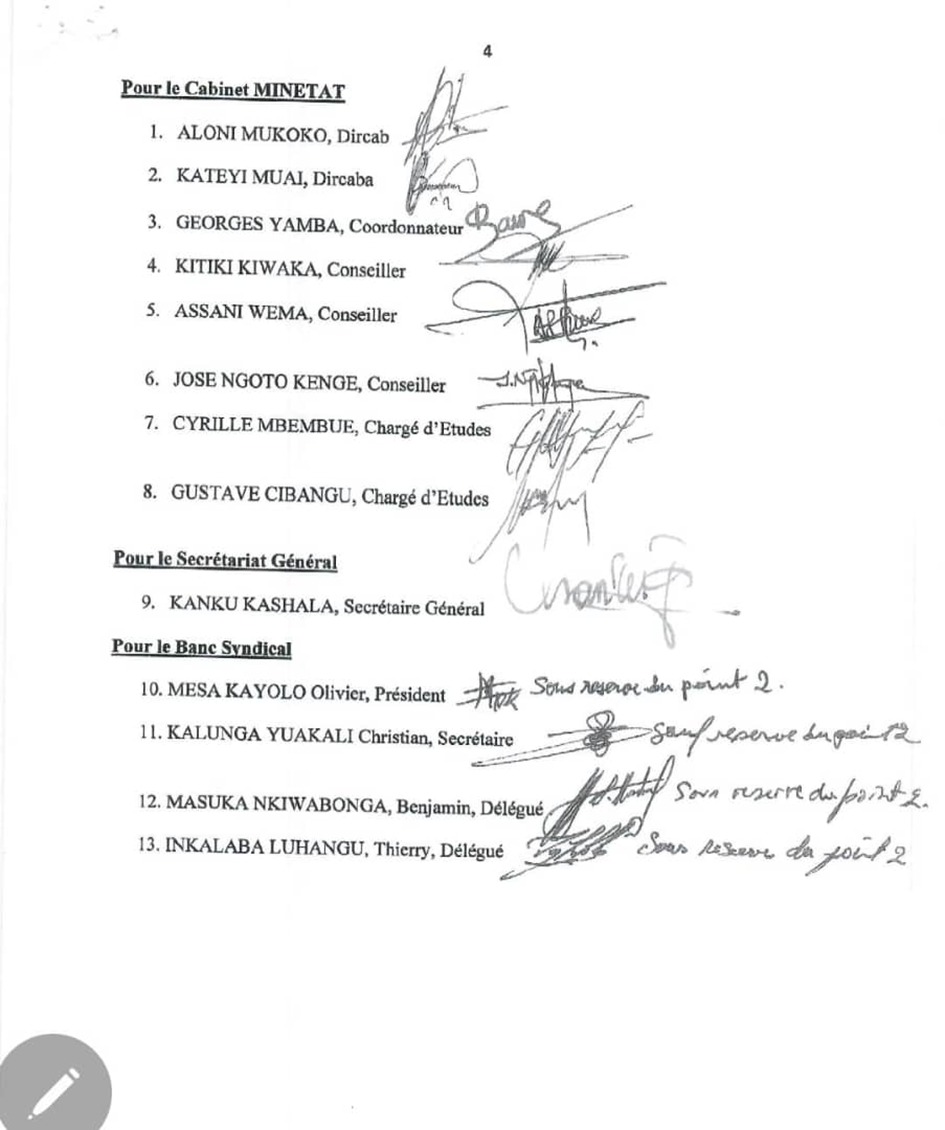 4
Pour le Cabinet MINETAT
1. ALONI MUKOKO, Dircab
2. KATEYI MUAI, Dircaba
3. GEORGES YAMBA, Coordonnateur
4. KITIKI KIWAKA, Conseiller
5. ASSANI WEMA, Conseiller
6. JOSE NGOTO KENGE, Conseiller
7. CYRILLE MBEMBUE, Chargé d'Etudes
8. GUSTAVE CIBANGU, Chargé d'Etudes
Pour le Secrétariat Général
9. KANKU KASHALA, Secrétaire Général
Pour le Banc Syndical
10. MESA KAYOLO Olivier, Président Sous reserve du point 2.
11. KALUNGA YUAKALI Christian, Secrétaire Sauf reserve du point 2
12. MASUKA NKIWABONGA, Benjamin, Délégué Sous reserve du point 2.
13. INKALABA LUHANGU, Thierry, Délégué Sous reserve du point 2